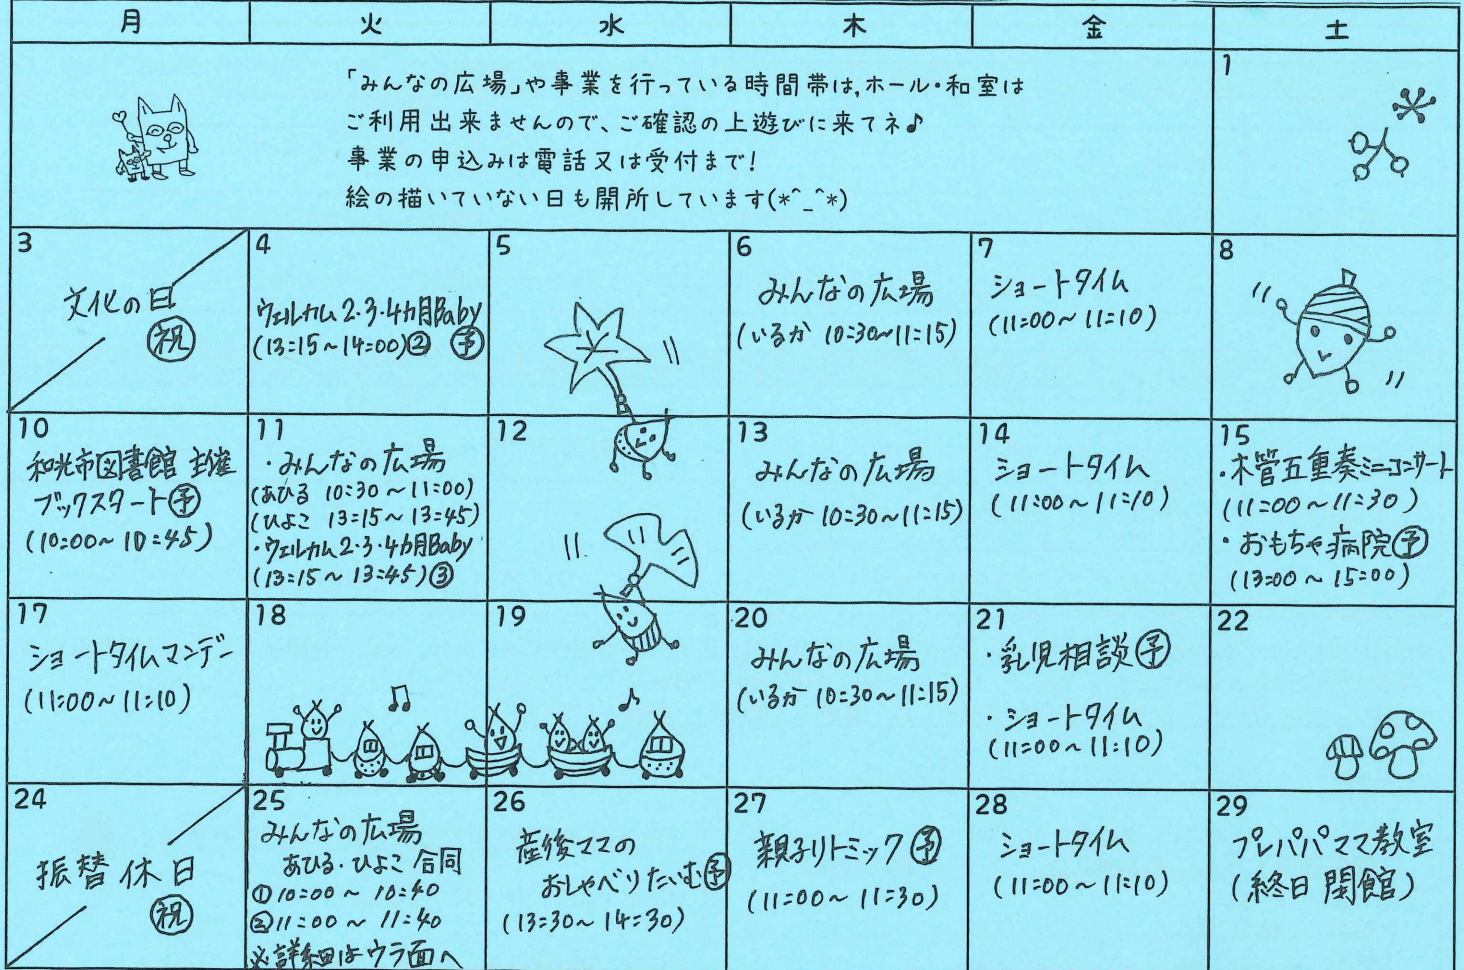 月 火 水 木 金 土
「みんなの広場」や事業を行っている時間帯は,ホール・和室は
ご利用出来ませんので、ご確認の上遊びに来てネ♪
事業の申込みは電話又は受付まで!
絵の描いていない日も開所しています(*^_^*)
1
3
文化の日
㊗
4
ウェルカム2・3・4カ月Baby
(13:15～14:00)② 予
5
6
みんなの広場
(いるか 10:30～11:15)
7
ショートタイム
(11:00～11:10)
8
10
和光市図書館 主催
ブックスタート予
(10:00～10:45)
11
・みんなの広場
(あひる 10:30～11:00)
(ひよこ 13:15～13:45)
・ウェルカム2・3・4カ月Baby
(13:15～13:45)③
12
13
みんなの広場
(いるか 10:30～11:15)
14
ショートタイム
(11:00～11:10)
15
・木管五重奏ミニコンサート
(11:00～11:30)
・おもちゃ病院予
(13:00～15:00)
17
ショートタイムマンデー
(11:00～11:10)
18
19
20
みんなの広場
(いるか 10:30～11:15)
21
・乳児相談予
・ショートタイム
(11:00～11:10)
22
24
振替休日
㊗
25
みんなの広場
あひる・ひよこ 合同
①10:00～10:40
②11:00～11:40
※詳細はウラ面へ
26
産後ママの
おしゃべりたいむ予
(13:30～14:30)
27
親子リトミック予
(11:00～11:30)
28
ショートタイム
(11:00～11:10)
29
プレパパママ教室
(終日 閉館)